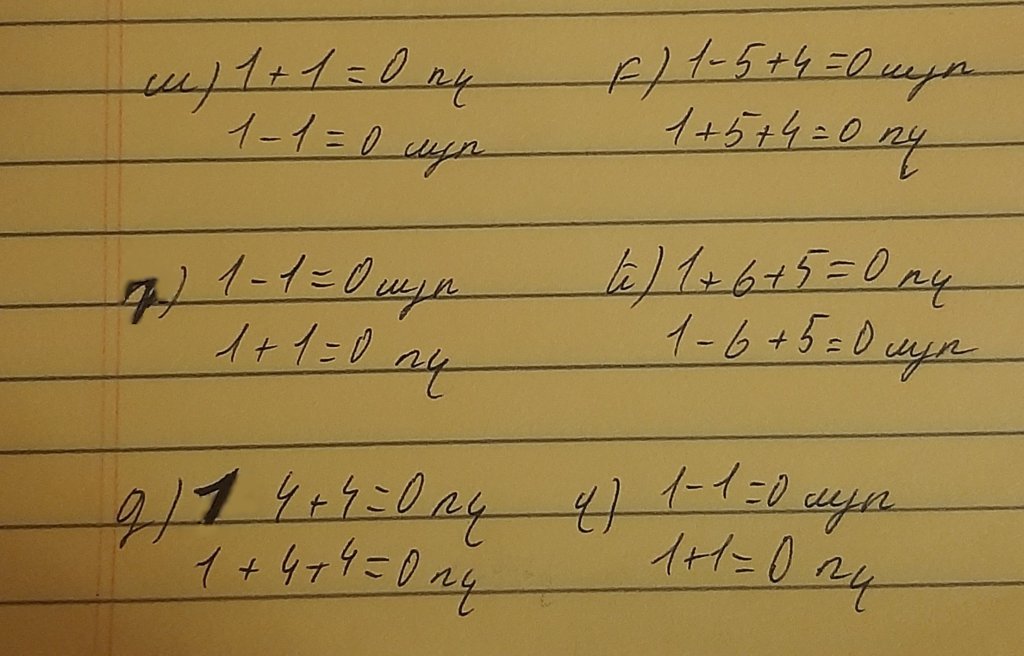 ա) 1+1=0 ոչ
1-1=0 այո
բ) 1-5+4=0 այո
1+5+4=0 ոչ
դ) 1-1=0 այո
1+1=0 ոչ
ե) 1+6+5=0 ոչ
1-6+5=0 այո
գ) 1 4+4=0 ոչ
1+4+4=0 ոչ
զ) 1-1=0 այո
1+1=0 ոչ